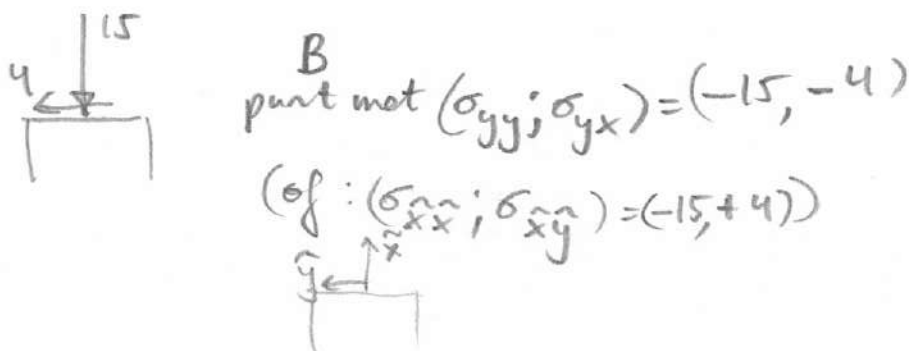 15
4
B
punt met (σyy; σyx) = (-15, -4)
(of : (σx̂x̂; σx̂ŷ) = (-15, +4))
x̂
ŷ